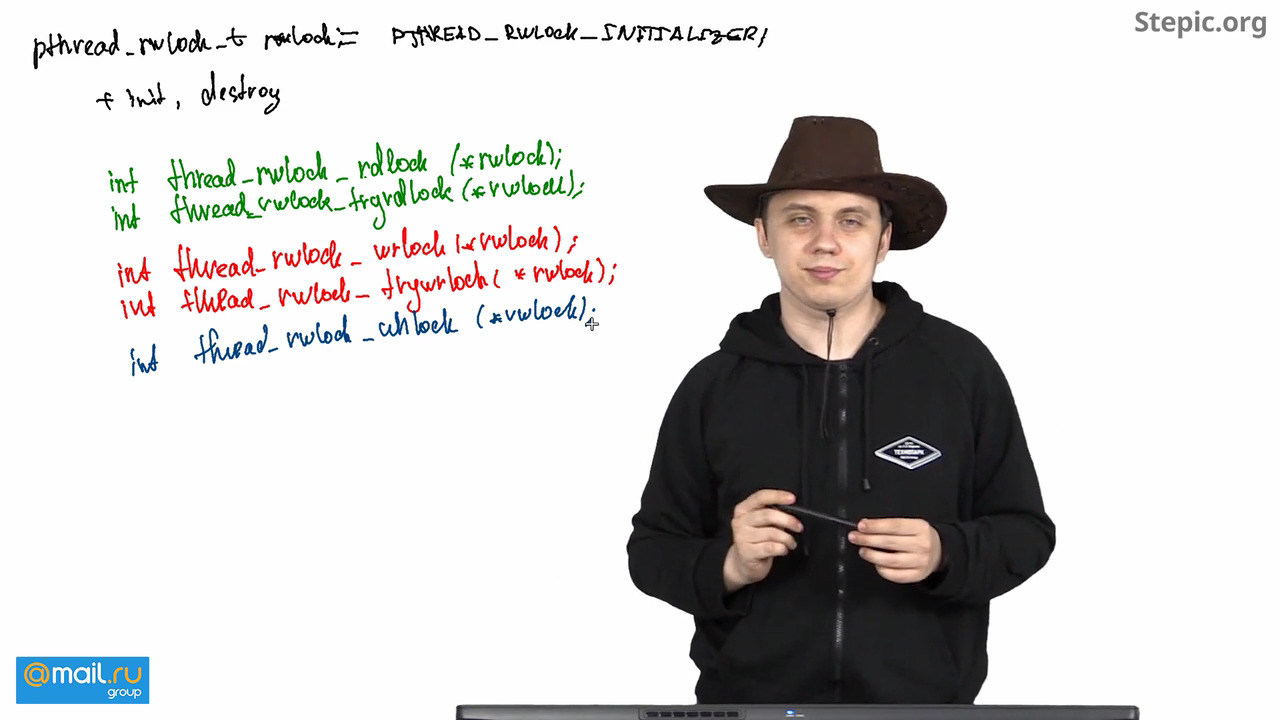 Stepic.org
pthread_rwlock_t rwlock = PTHREAD_RWLOCK_INITIALIZER;
+ init, destroy
int thread_rwlock_rdlock (*rwlock);
int thread_rwlock_tryrdlock (*rwlock);
int thread_rwlock_wrlock (*rwlock);
int thread_rwlock_trywrlock( *rwlock);
int thread_rwlock_unlock (*rwlock);
ТЕХНОПАРК
@mail.ru
group